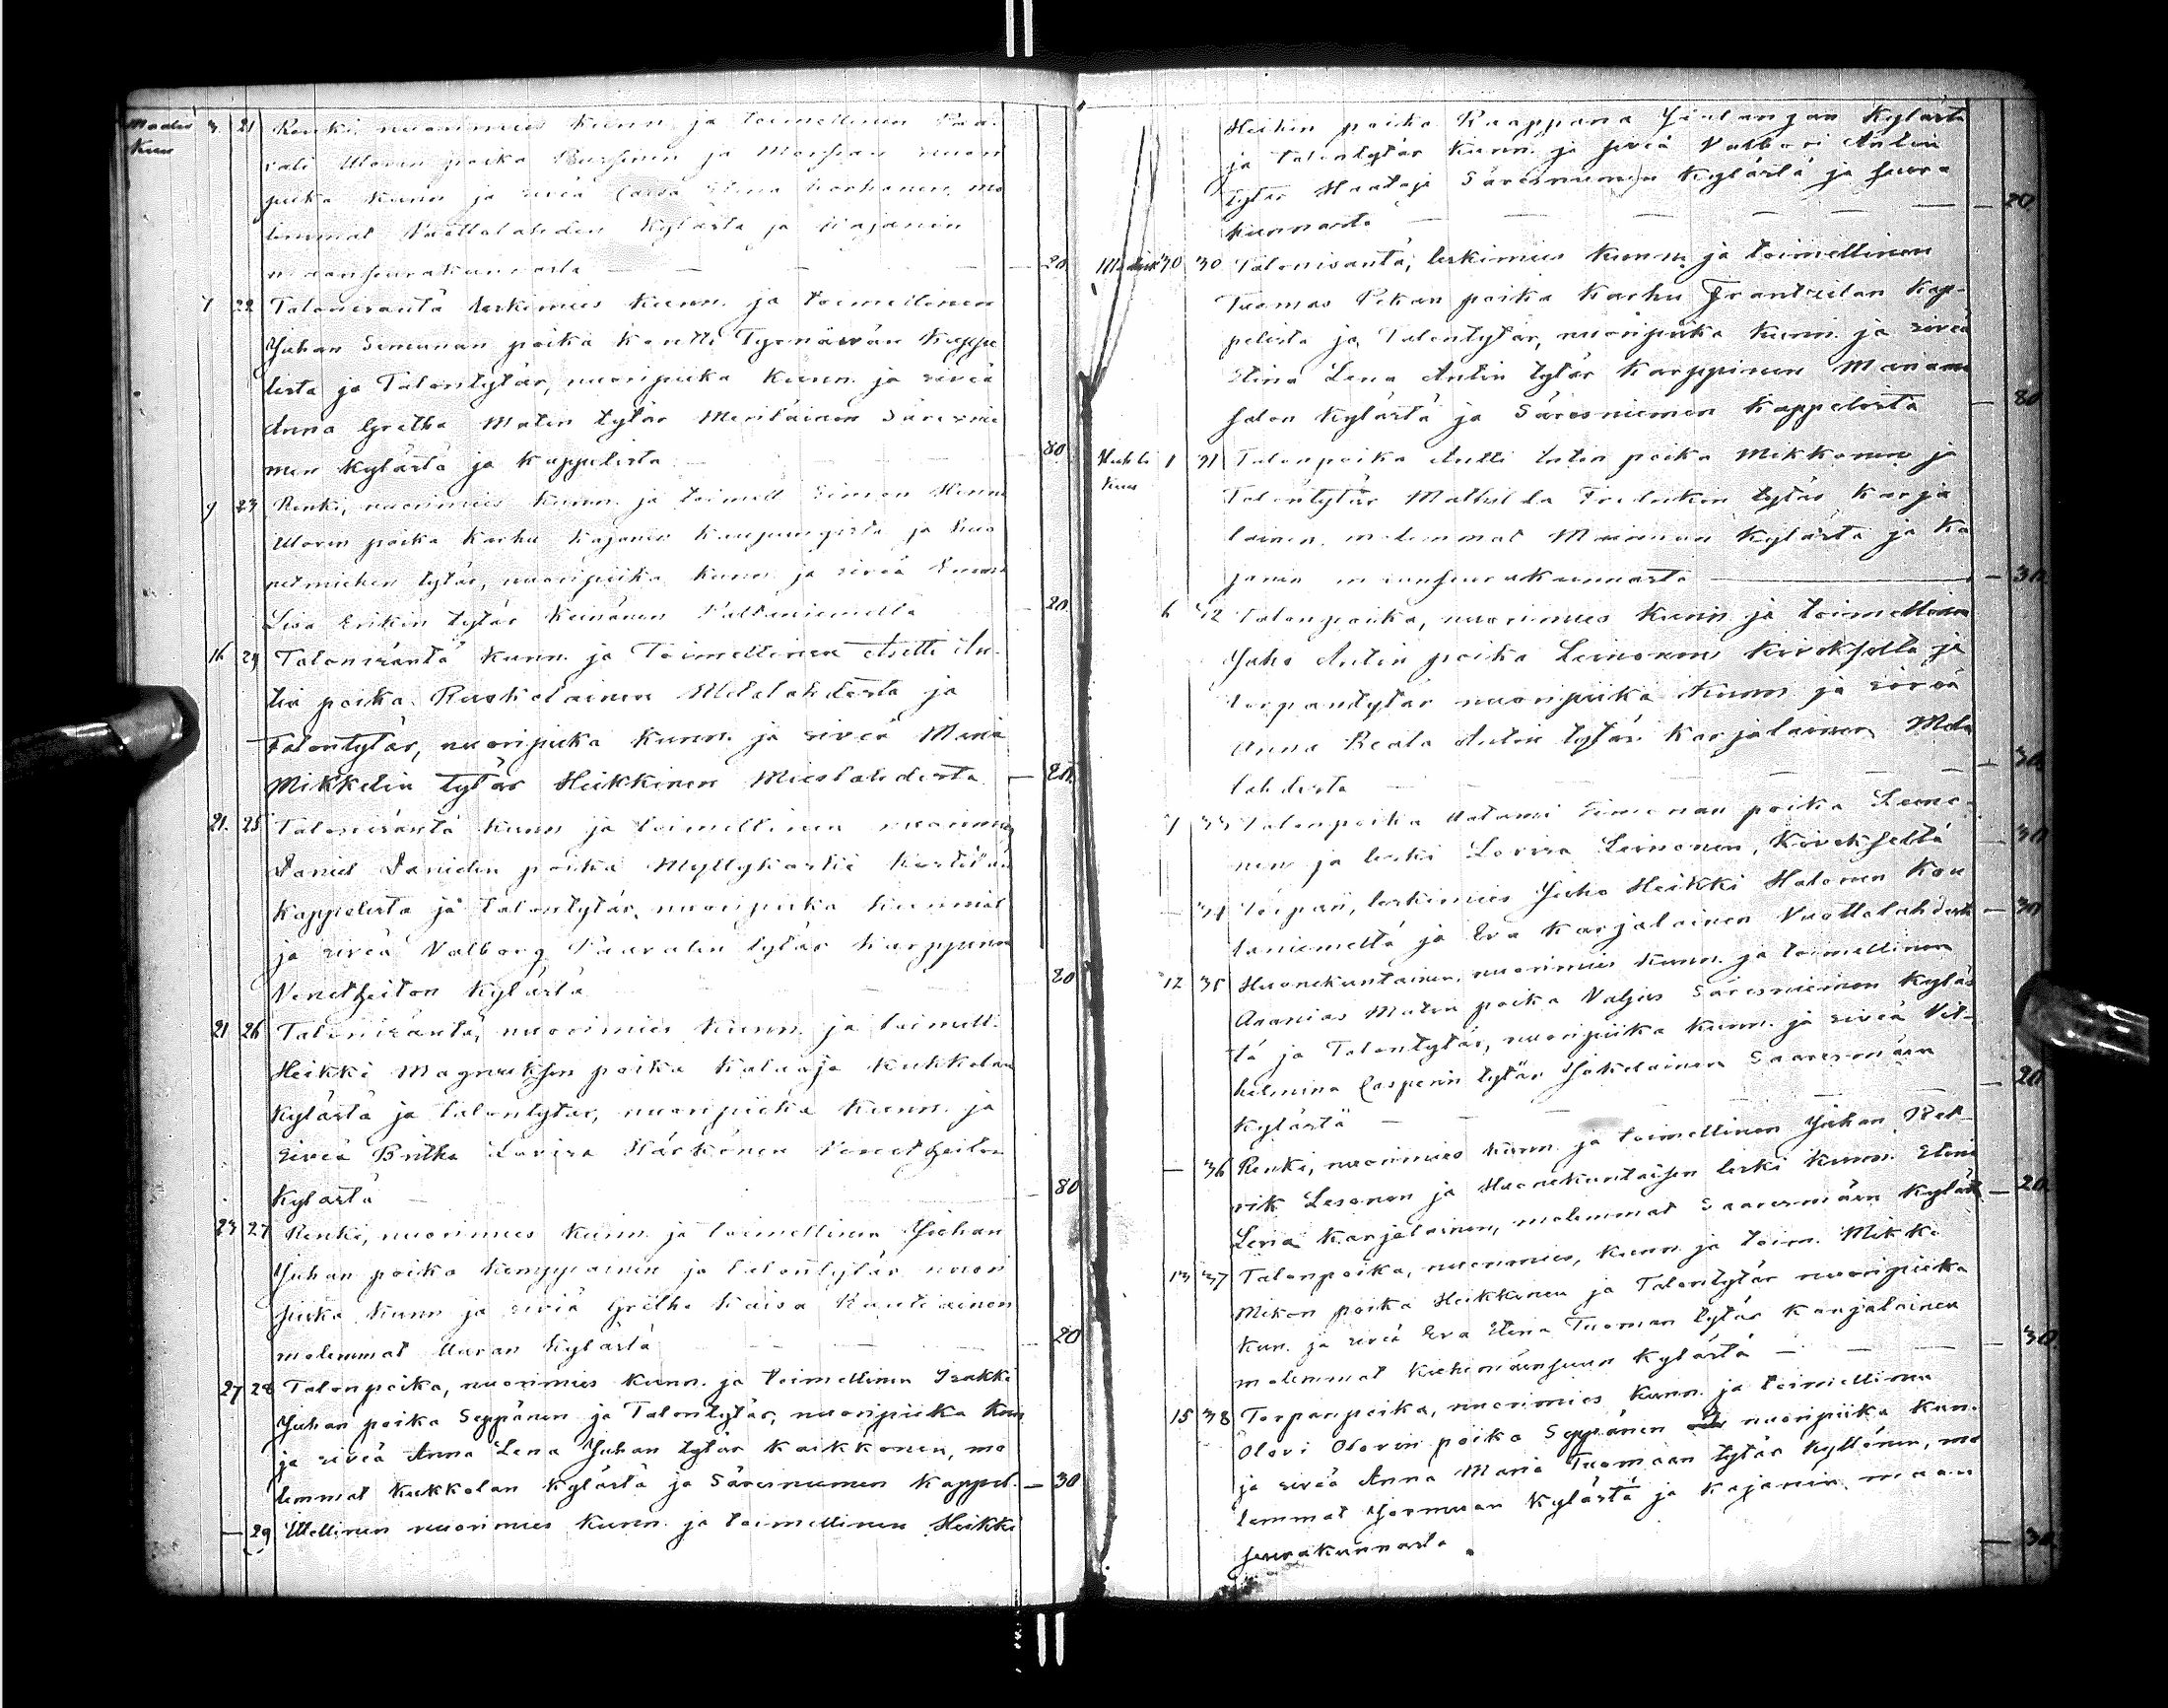 Maalis 3. 21 Renki, nuorimies kunn. ja toimellinen Paa-
Kuu vali Olovin poika ja nuori
piika kunn. ja siviä Caisa Stina Korhonen, mo
lemmat Vuottolahden Kylästä ja Kajanin
maanseurakunnasta — 20.
7 22 Talonisäntä leskimies kunn. ja toimellinen
Juhan Simunan poika Kontti Tyrnäwän Kappe
lista ja Talontytär, nuoripiika kunn. ja siviä
Anna Gretha Matin tytär Meriläinen Säresnie
men Kylästä ja Kappelista — 80.
9 23 Renki, nuorimies kunn. ja toimell. Simon
Olovin poika Karhu Kajanin Kaupungista ja
tytär, nuoripiika kunn. ja siviä
Lisa Erikin tytär Keinänen Paltaniemeltä — 20.
16 24 Talonisäntä kunn. ja Toimellinen Antti An-
tin poika Ruskolainen Melalahdesta ja
Talontytär, nuoripiika kunn. ja siviä Maria
Mikkelin tytär Heikkinen Mieslahdesta — 20.
21. 25 Talonisäntä kunn. ja toimellinen nuorimies
Daniel Danielin poika Myllykoski Kestilän
Kappelista ja talontytär, nuoripiika kunnial
ja siviä Valborg Paavalin tytär Karppinen
Venetheiton Kylästä — 80
21 26 Talonisäntä, nuorimies kunn. ja toimell.
Heikki Magnuksen poika Kalaaja Kukkolan
Kylästä ja talontytär, nuoripiika kunn. ja
siviä Britha Lovisa Härkönen Venetheiton
Kylästä — 80
23 27 Renki, nuorimies kunn. ja toimellinen Juhan
Juhan poika Kemppainen ja talontytär nuori
piika kunn. ja siviä Gretha Kaisa Rautiainen
molemmat Uuran Kylästä — 20
27 28 Talonpoika, nuorimies kunn. ja toimellinen Isakki
Juhan poika Seppänen ja Talontytär, nuoripiika kun
ja siviä Anna Lena Juhan tytär Kaikkonen, mo
lemmat Kukkolan Kylästä ja Säresniemen Kappel. — 30
— 29 Itellinen nuorimies kunn. ja toimellinen Heikki
Heikin poika Kaappana Kylästä
ja talontytär kunn. ja siviä Valbori Antin
tytär Haataja Säresniemen Kylästä ja seura
kunnasta — 20
Maalisk. 30 30 Talonisäntä, leskimies kunn. ja toimellinen
Tuomas Pekan poika Karhu Frantzilan Kap-
pelista ja Talontytär, nuoripiika kunn. ja siviä
Stina Lena Antin tytär Karppinen Manamam
salon Kylästä ja Säresniemen Kappelista — 80
Huhti 1 31 Talonpoika Antti Antin poika Mikkonen ja
Kuu Talontytär Mathilda Fredrikin tytär Karja
lainen, molemmat Mainuan Kylästä ja Ka
janin maanseurakunnasta — 30.
6 32 Talonpoika, nuorimies kunn. ja toimellinen
Juho Antin poika Leinonen Koivokselta ja
torpantytär nuoripiika kunn. ja siviä
Anna Reata Antin tytär Karjalainen Mela
lahdesta — 30.
7 33 Talonpoika Aatami Simonan poika Leino-
nen ja leski Lovisa Leinonen, Koivokselta — 30
— 34 Torpari, leskimies Juho Heikki Halonen Kou
taniemeltä ja Eva Karjalainen Vuottolahdesta — 30
12 35 Huonekuntainen, nuorimies kunn. ja toimellinen
Ananias Matin poika Valjus Säresniemen Kyläs
tä ja Talontytär, nuoripiika kunn. ja siviä Vil-
helmina Casperin tytär Jokelainen Saaresmäen
Kylästä — 20
— 36 Renki, nuorimies kunn. ja toimellinen Juhan Het-
rik Lesonen ja Huonekuntaisen leski kunn. Stina
Lena Karjalainen, molemmat Saaresmäen Kyläst — 20
13 37 Talonpoika, nuorimies, kunn. ja toim. Mikko
Mikon poika Heikkinen ja Talontytär nuoripiika
kun. ja siviä Eva Stina Tuoman tytär Karjalainen
molemmat Kiehimänsuun Kylästä — 30.
15 38 Torpanpoika, nuorimies kunn. ja toimellinen
Olovi Olovin poika Seppänen nuoripiika kun.
ja siviä Anna Maria Tuomaan tytär Kyllönen, mo
lemmat Jormuan Kylästä ja Kajanin maan
seurakunnasta — 30